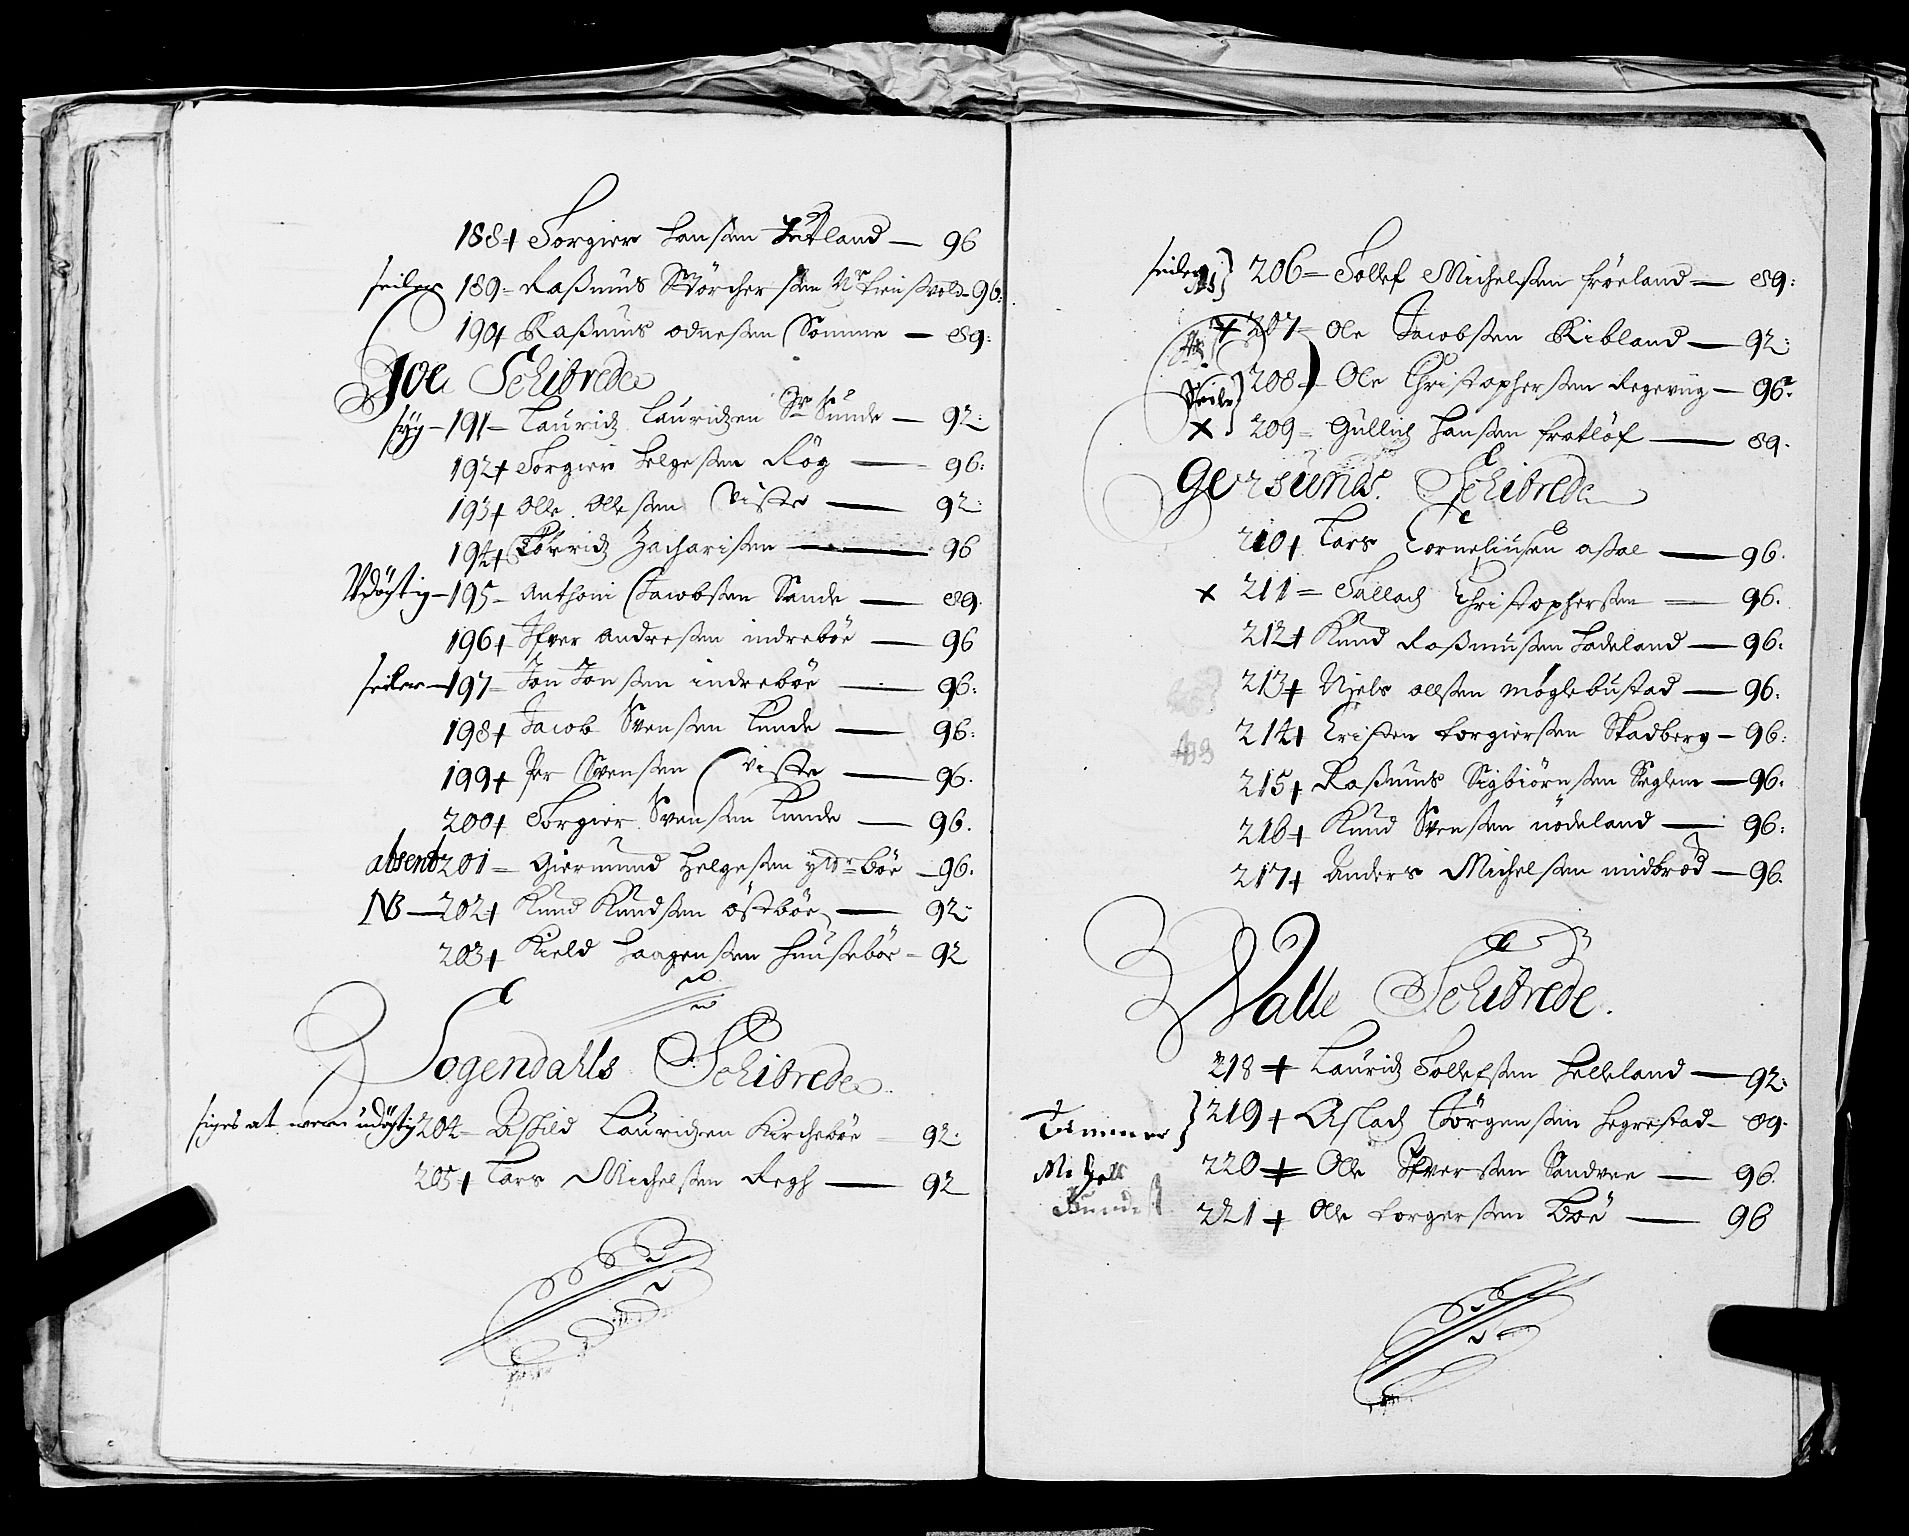 188+ Torgier Hansen Jutland — 96
seiler 189= Rasmus Störchersen — 96:
190+ Rasmus Odnesen Somme — 89:
Joe Schibrede
syg — 191 — Lauridz Lauridzen Sr Sunde — 92:
192+ Torgier Helgesen Røg — 96:
193+ Olle Ollesen Viste — 92:
194+ Lauridz Zacharisen — 96
Udögtig — 195 — Anthoni Jacobsen Sande — 89.
196+ Ifver Andresen indreböe — 96
seiler — 197= Jon Jonsen indrebøe — 96:
198+ Jacob Svensen Lunde — 96:
199+ Per Svensen Viste — 96.
200+ Torgier Svensen Lunde — 96.
absent 201= Giermund Helgesen ytrebøe — 96.
NB — 202+ Knud Knudsen østbøe — 92:
203+ Kield Haagensen Huusebøe — 92
Sogendahls Schibrede
siges at were udögtig 204= Aschild Lauridzen Kirchebøe = 92:
205+ Lars Michelsen Regh — 92
seiler 206= Tollef Michelsen fröeland — 89:
+ 207= Ole Jacobsen Birkland — 92:
seiler 208+ Ole Christophersen Regeviig — 96
x 209= Gullich Hansen frotlöf — 89.
Gersunds Schibrede
210+ Lars Corneliusen Asal — 96.
x 211= Tallach Christophersen = 96.
212+ Knud Rasmusen Hadeland — 96.
213+ Niels Ollsen Møglebustad — 96.
214+ Christen Torgiersen Skadberg — 96:
215+ Rasmus Sigbiörnsen Seglem — 96.
216+ Knud Svensen nödeland — 96:
217+ Anders Michelsen midbrød — 96.
Walle Schibrede.
218+ Lauridz Tollefsen Helleland — 92:
Tömmer 219+ Aslach Törgensen Hegrestad — 89.
Michell 220+ Olle Ifversen Sandvee — 96.
221+ Olle Torgersen Böe — 96